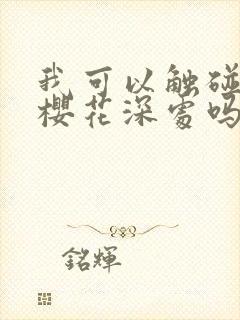 我可以触碰
樱花深处吗
銘輝